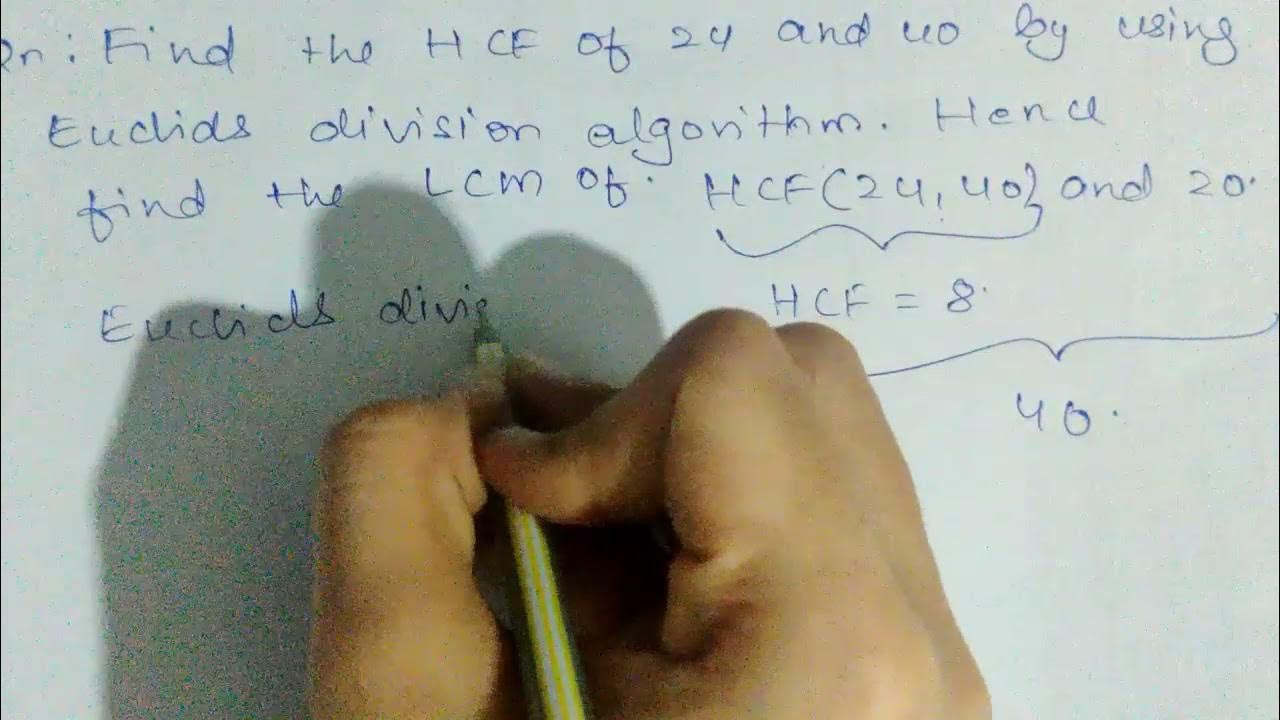 Qn: Find the HCF of 24 and 40 by using
Euclids division algorithm. Hence
find the LCM of. HCF(24,40) and 20.
HCF = 8.
Euclids divis
40.